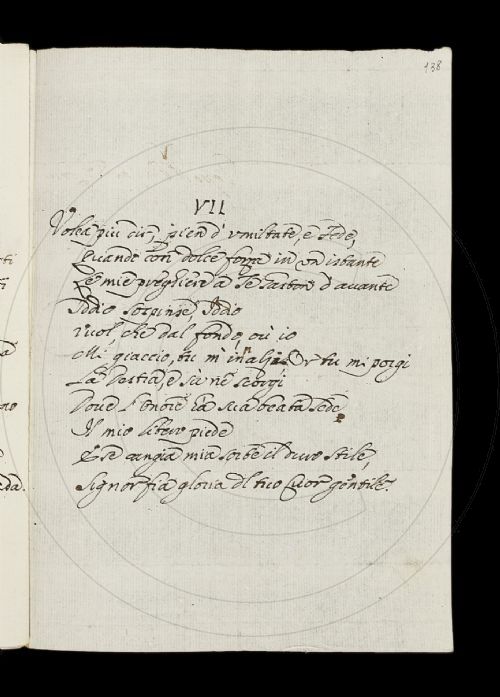 138
VII
Volea più dir, pien d' umiltate, e Fede,
Quando con dolce forza in un istante
Le mie preghiere a Te davante
Iddio sospinse, Iddio
vuol, che dal fondo, où io
Mi giaccio, tu m'inalzi Or tu mi porgi
La destra, e sù ne scorgi
Dove l'onore hà sua beata sede
Il mio piede
E se cangia mia sorte il duro stile,
Signor fia gloria del tuo Cuor gentile.